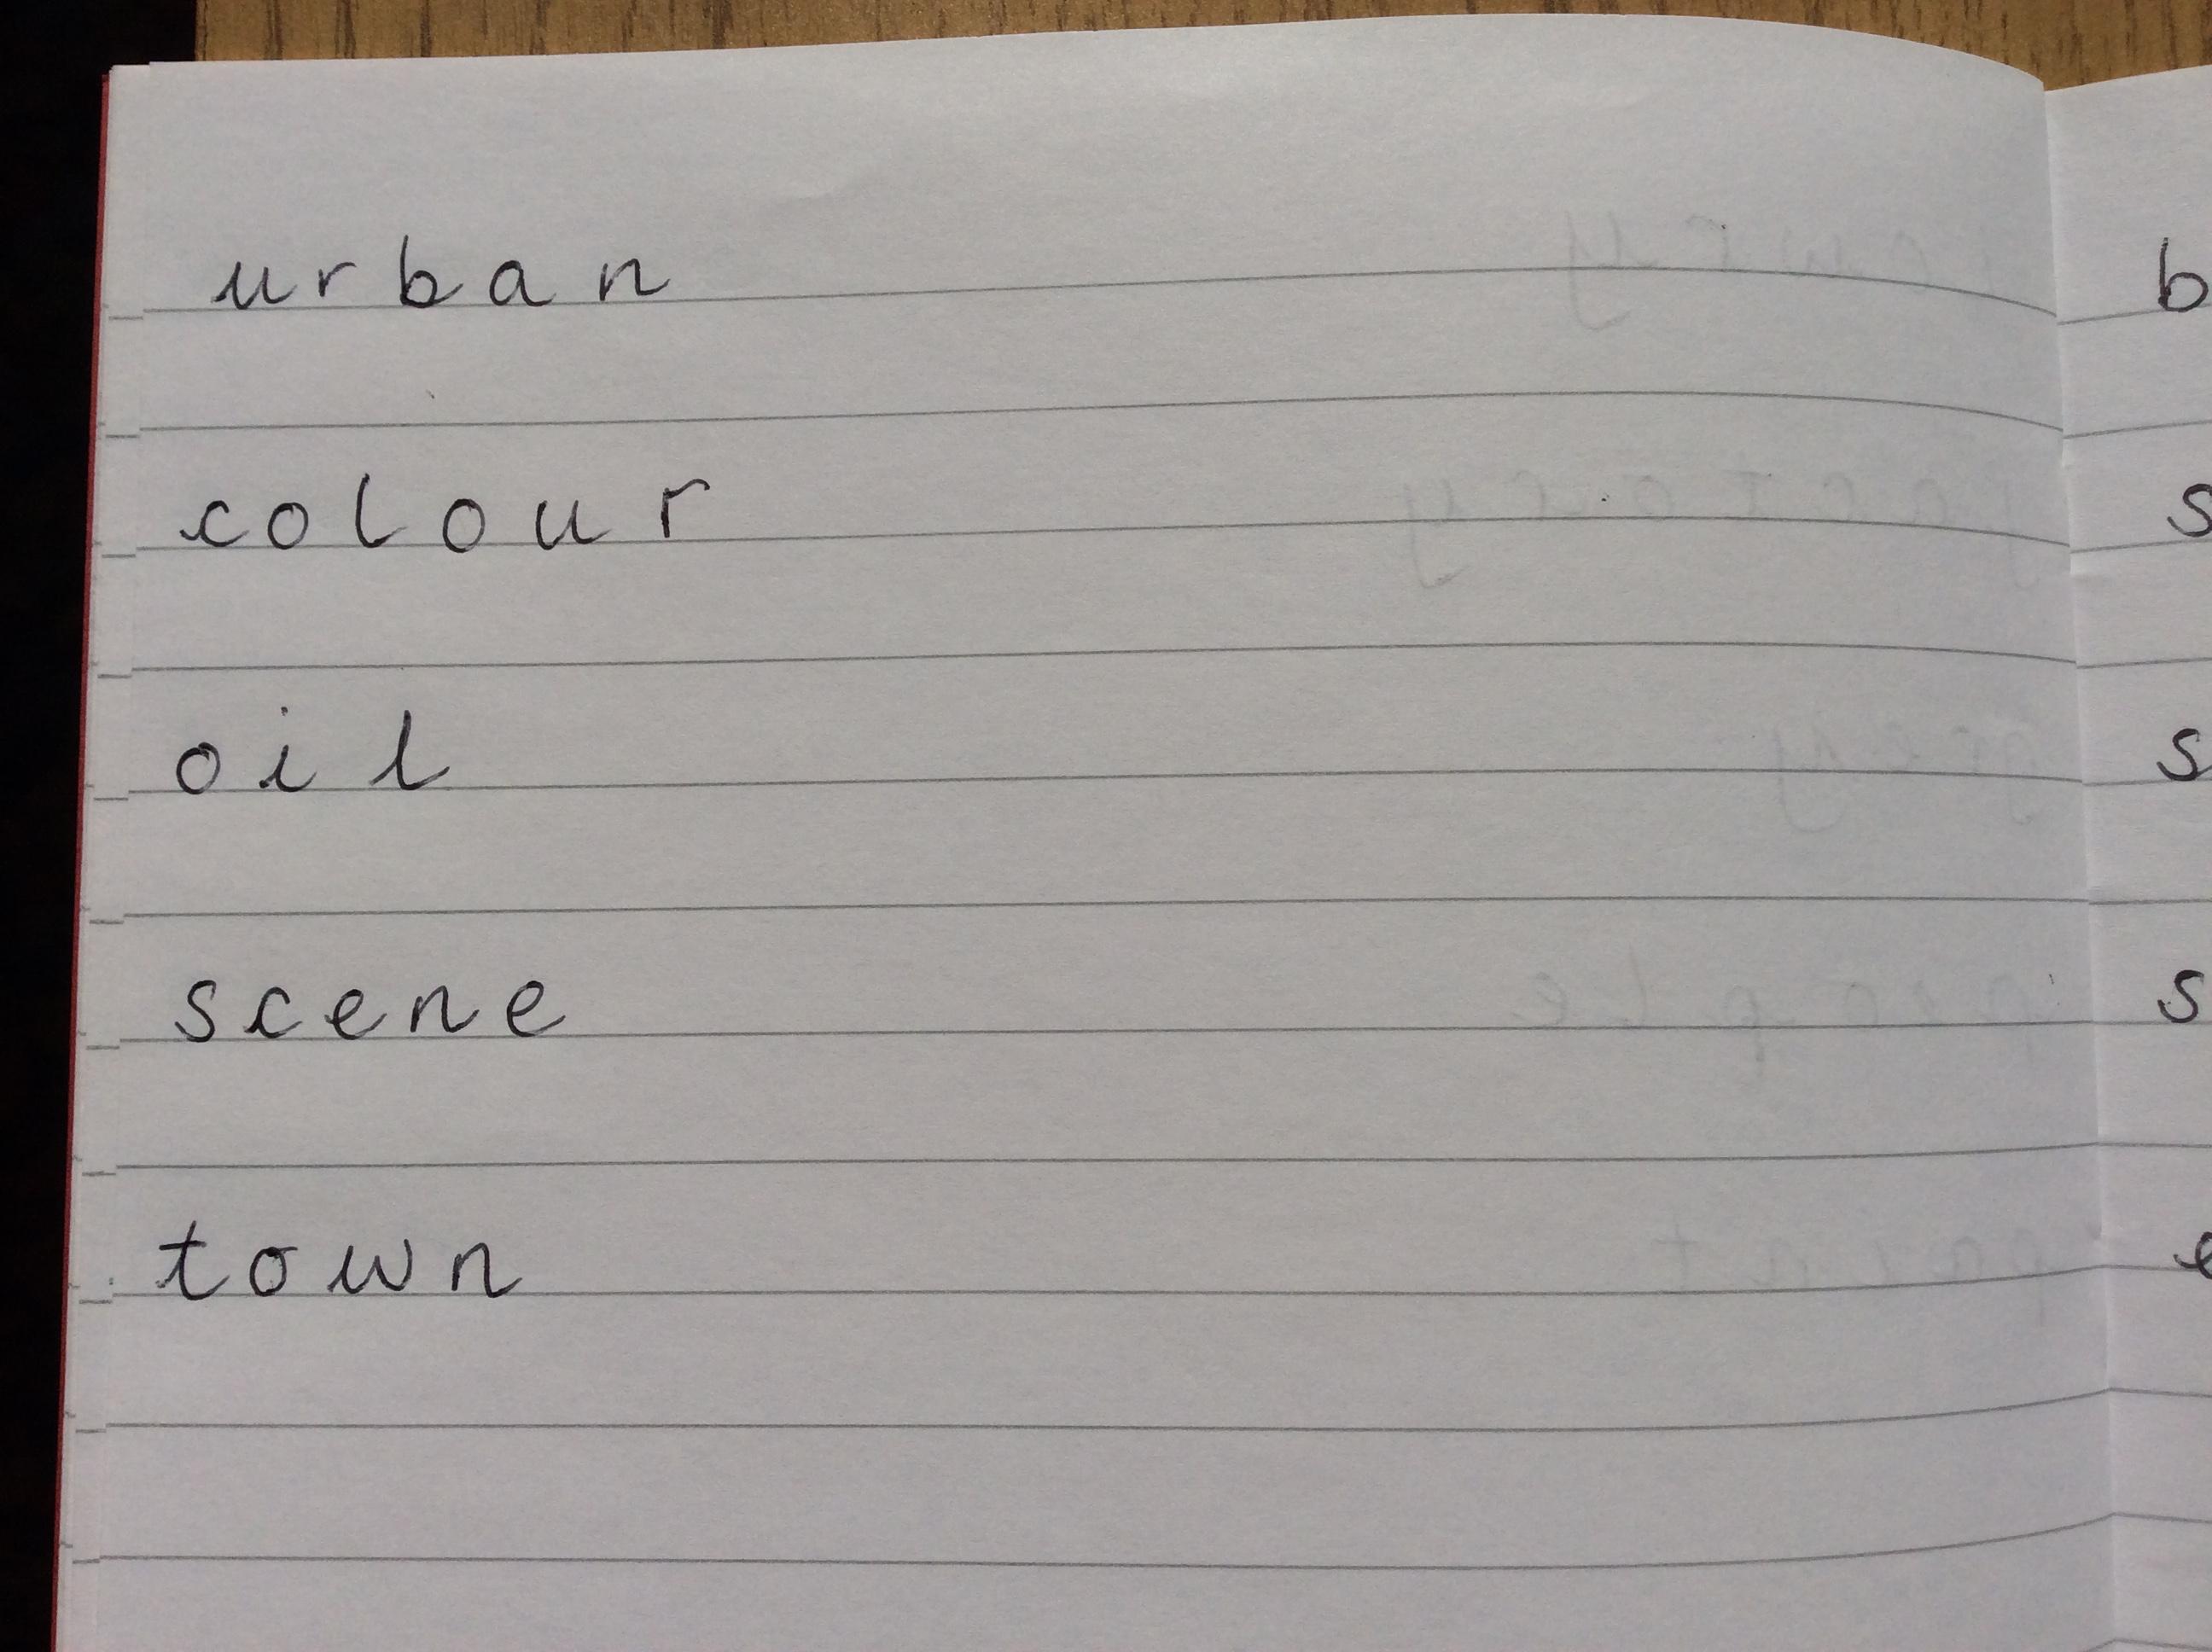 urban
colour
oil
scene
town